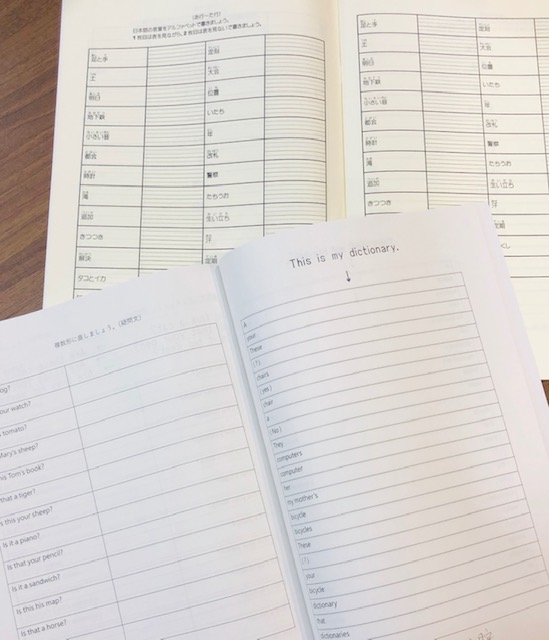 (あ行〜た行)
日本語の言葉をアルファベットで書きましょう。
1枚目は表を見ながら、2枚目は表を見ないで書きましょう。
足と手
定規
王
大会
明日
位置
地下鉄
いたち
小さい音
年
都会
改札
時計
警察
滝
たちうお
追加
生い立ち
きつつき
解決
定期
タコとイカ
足と手
定規
王
大会
明日
位置
地下鉄
いたち
小さい音
都会
改札
時計
警察
滝
たちうお
追加
生い立ち
きつつき
複数形に直しましょう。(疑問文)
our watch?
tomato?
Mary's sheep?
his Tom's book?
that a tiger?
s this your sheep?
Is it a piano?
Is that your pencil?
Is it a sandwich?
Is this his map?
Is that a horse?
This is my dictionary.
↓
your
These
(?)
chairs
(yes)
chair
(No)
They
computers
computer
her
my mother's
bicycle
bicycles
These
(?)
your
bicycle
dictionary
dictionaries